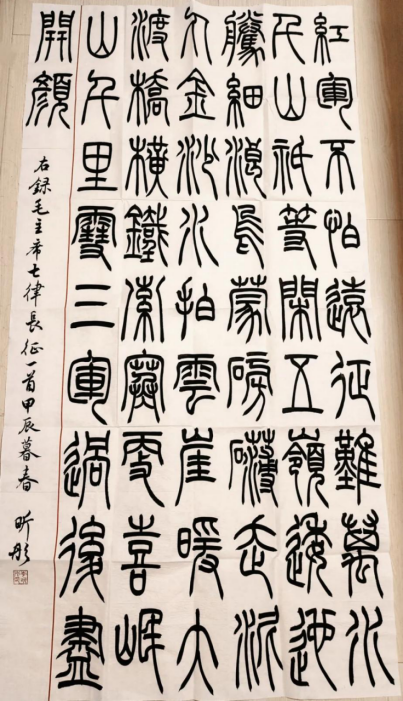 紅軍不怕遠征難萬水
千山祇等閑五嶺逶迤
騰細浪烏蒙磅礴走泥
丸金沙水拍雲崖暖大
渡橋橫鐵索寒更喜岷
山千里雪三軍過後盡
開顏
右錄毛主席七律長征一首甲辰暮春 昕彤